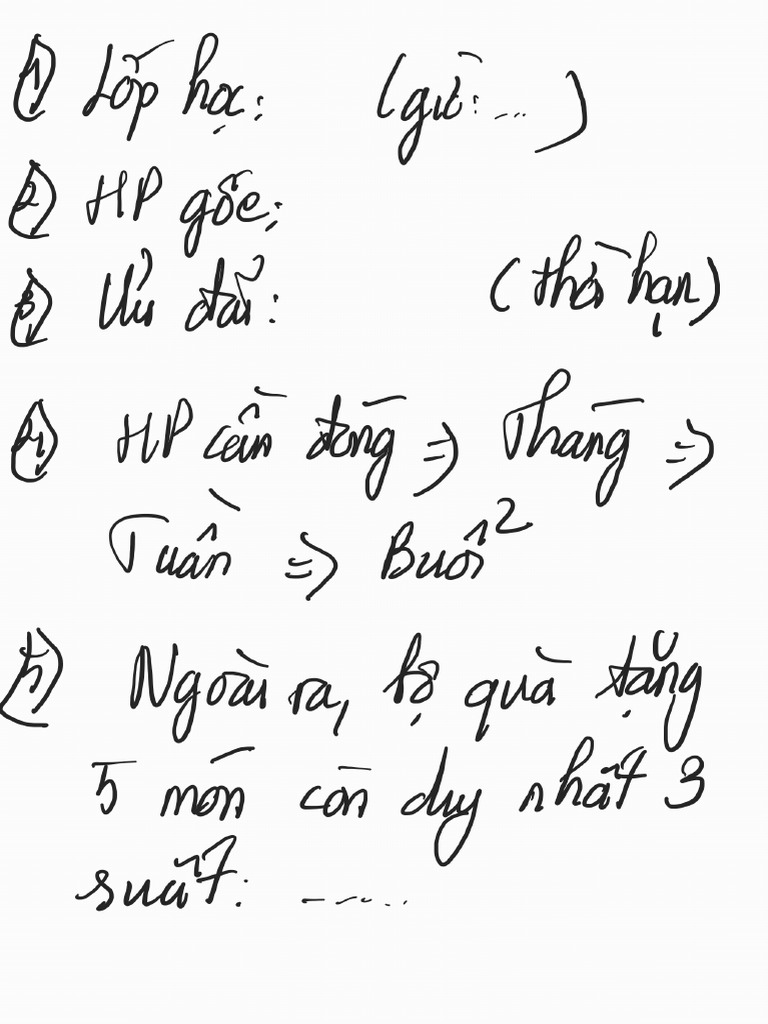 1) Lớp học: (giờ: ...)
2) HP gốc:
3) Ưu đãi: (thời hạn)
4) HP cần đóng => Tháng =>
Tuần => Buổi
5) Ngoài ra, bộ quà tặng
5 món còn duy nhất 3
suất: .....